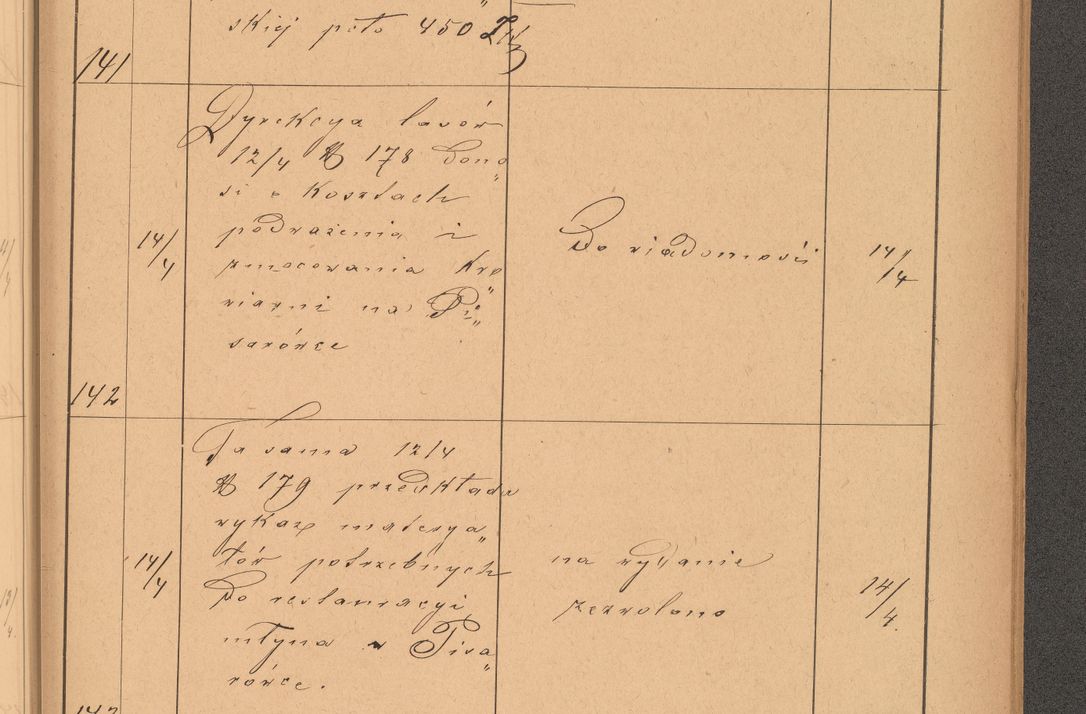 skiej pcto 450 ZłR
141
Dyrekcya lasów
12/4 N 178 dono„
si o kosztach
podważenia i
14/4
umocowania kro„
wiarni na Pi„
sarówce
Do wiadomości
14/4
142
Ta sama 12/4
N 179 przedkłada
wykaz materya„
łów potrzebnych
14/4
do restauracyi
młyna w Pisa„
rówce.
na wydanie
zezwolono
14/4.
143